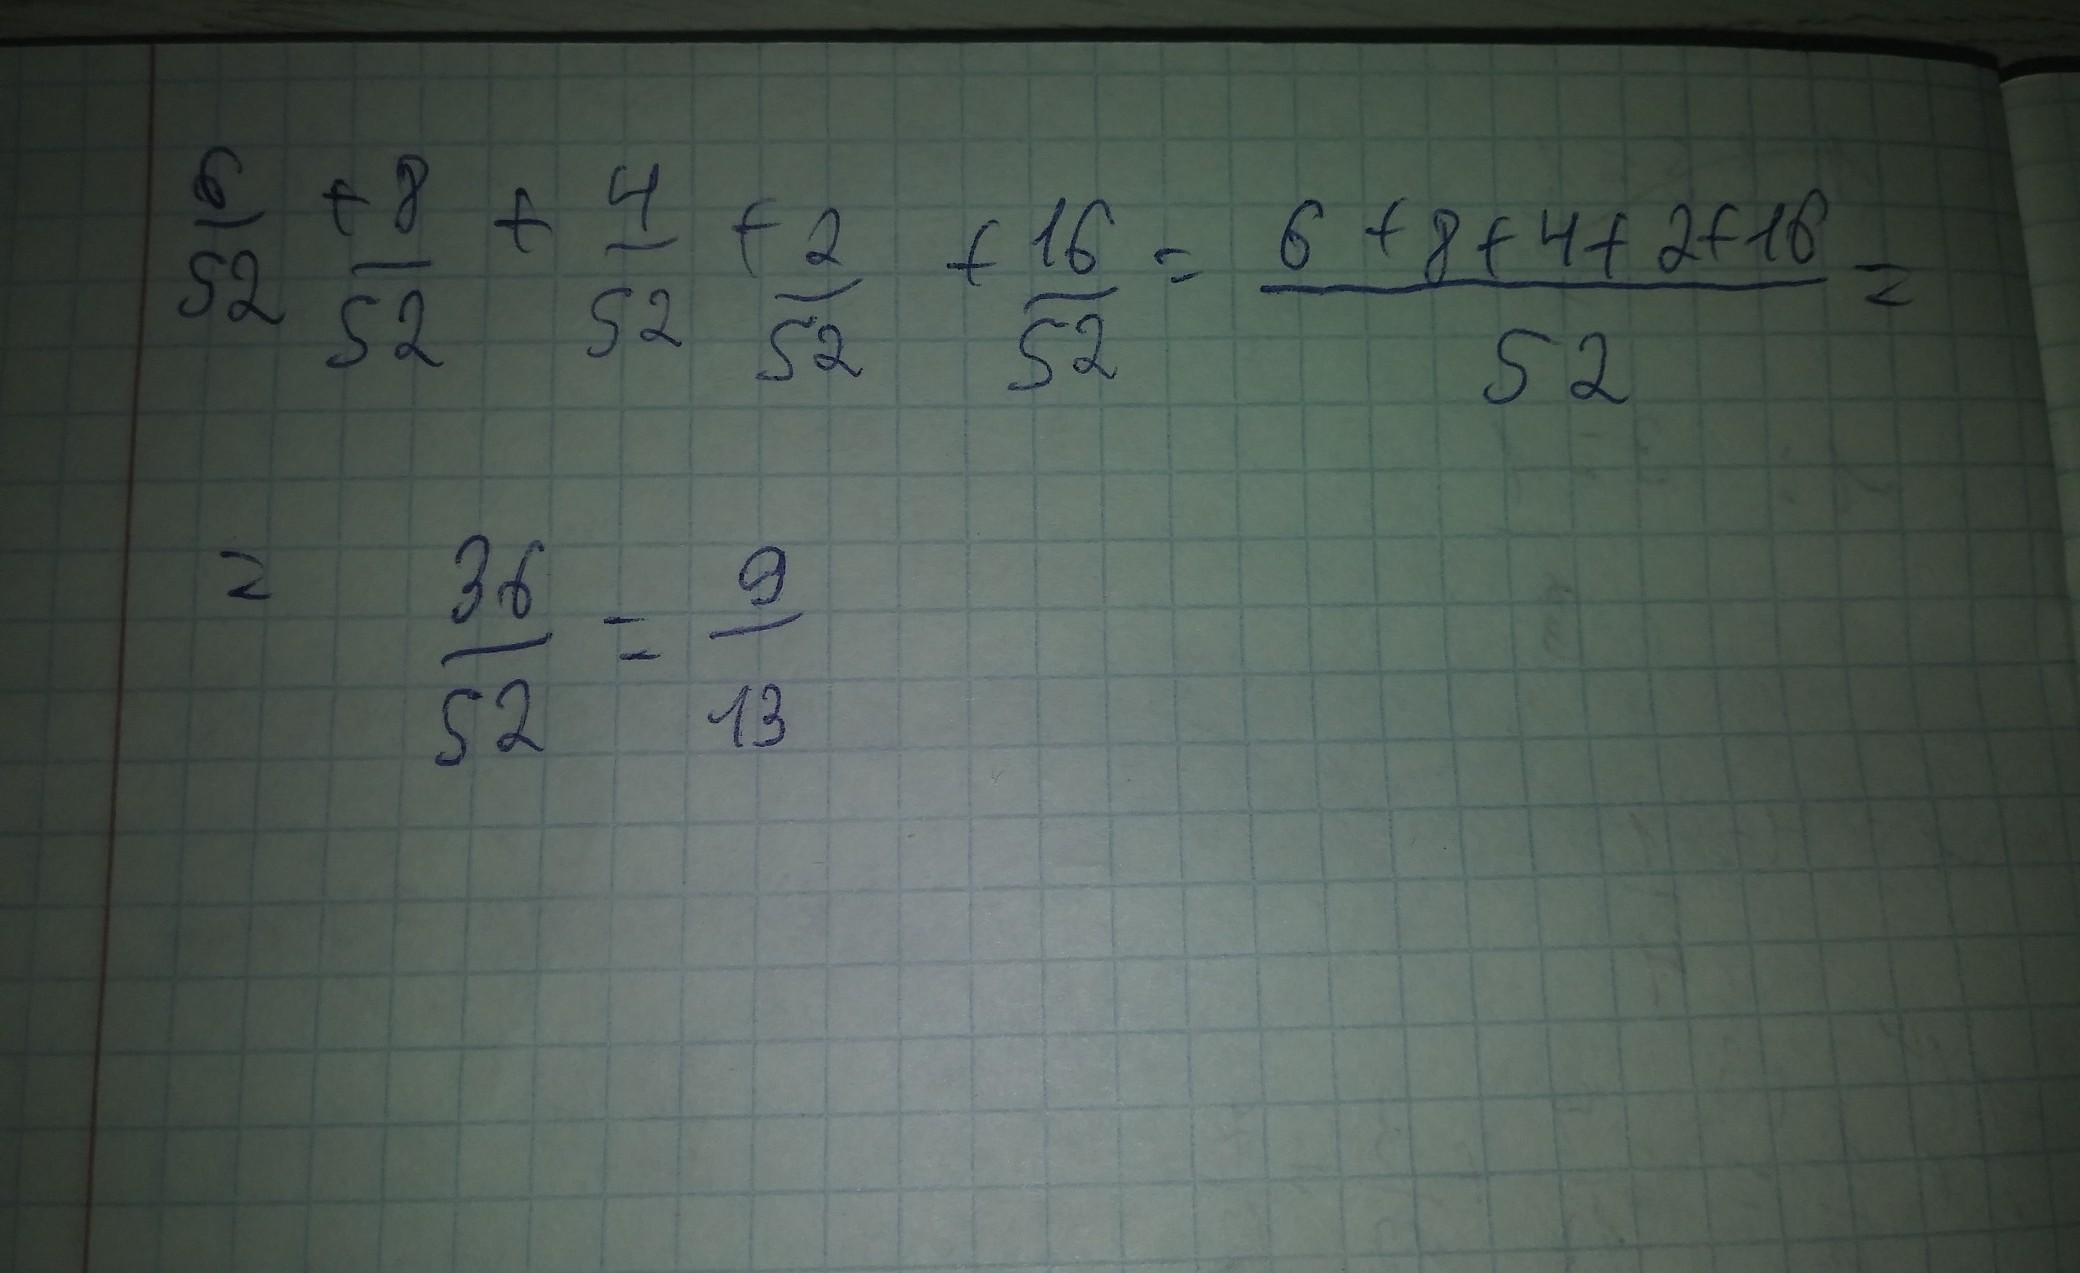 6/52 + 8/52 + 4/52 + 2/52 + 16/52 = 6+8+4+2+16/52 =
= 36/52 = 9/13